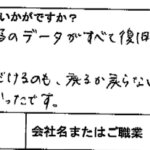 いかがですか？
るのデータがすべて復旧
だけるのも、戻るか戻らない
かったです。
会社名またはご職業